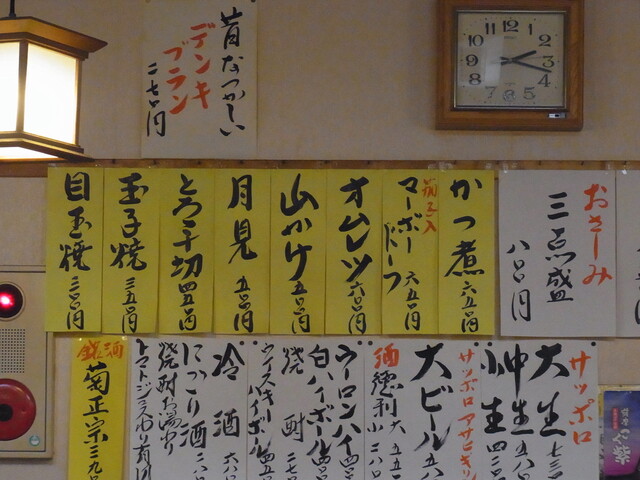 昔なつかしい
デンキ
ブラン
二七〇円
おさしみ
三点盛
八〇〇円
かつ煮
六五〇円
茄子入
マーボー
ドーフ
六五〇円
オムレツ
六〇〇円
山かけ
五〇〇円
月見
五〇〇円
とろ千切
四五〇円
玉子焼
三五〇円
目玉焼
三〇〇円
サッポロ
大生
中生
小生
サッポロ アサヒ キリン
大ビール
酒
徳利 大
小
ウーロンハイ
白ハイボール
焼酎
ウイスキー
ハイボール
冷酒
にごり酒
焼酎お湯わり
銘酒
菊正宗